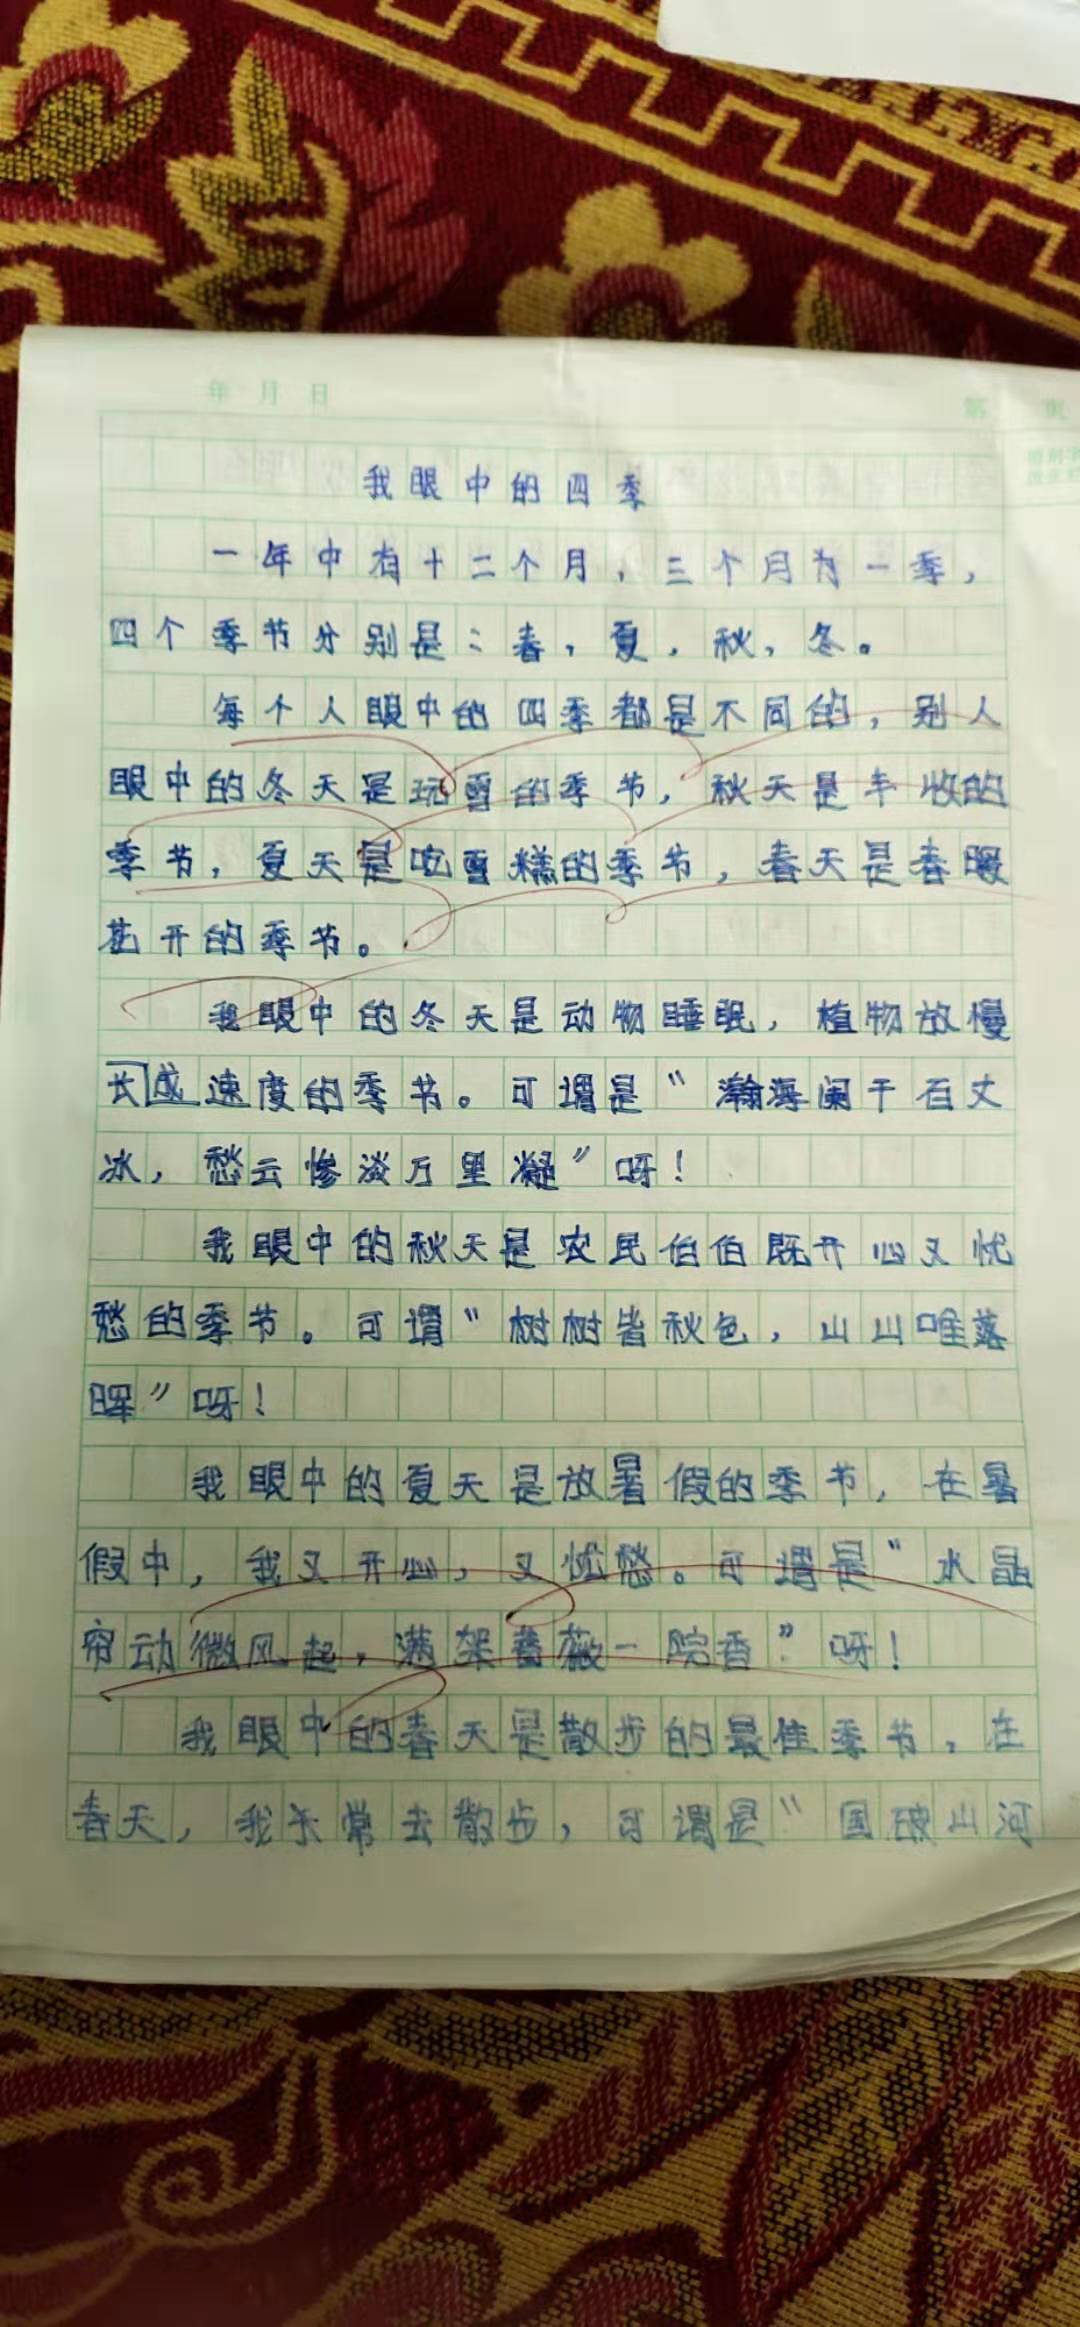 年 月 日
第 页
我眼中的四季
一年中有十二个月，三个月为一季，
四个季节分别是：春，夏，秋，冬。
每个人眼中的四季都是不同的，别人
眼中的冬天是玩雪的季节，秋天是丰收的
季节，夏天是吃雪糕的季节，春天是春暖
花开的季节。
我眼中的冬天是动物睡眠，植物放慢
长成速度的季节。可谓是“瀚海阑干百丈
冰，愁云惨淡万里凝”呀！
我眼中的秋天是农民伯伯既开心又忧
愁的季节。可谓“树树皆秋色，山山唯落
晖”呀！
我眼中的夏天是放暑假的季节，在暑
假中，我又开心，又忧愁。可谓是“水晶
帘动微风起，满架蔷薇一院香”呀！
我眼中的春天是散步的最佳季节，在
春天，我长常去散步，可谓是“国破山河